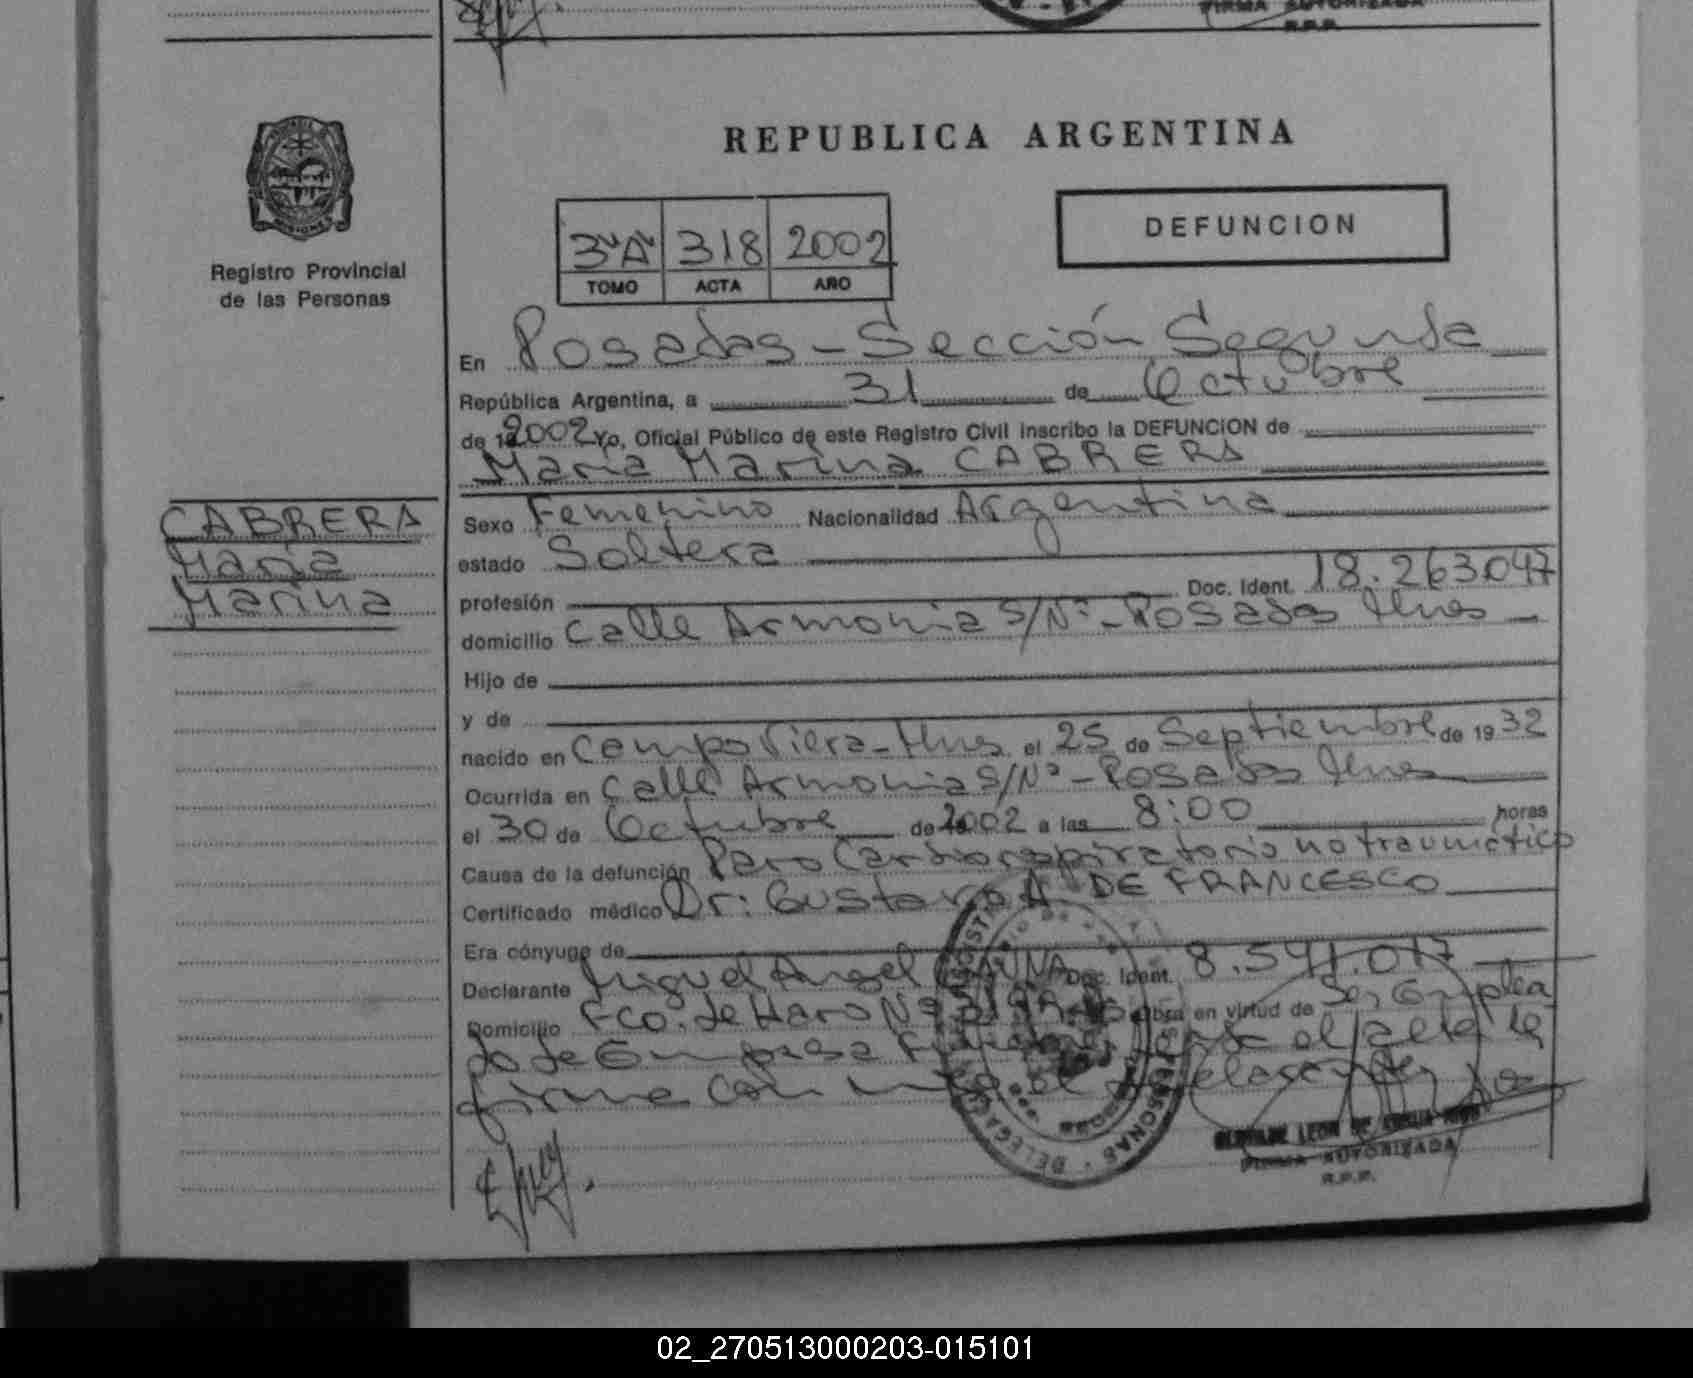 FIRMA AUTORIZADA
R.P.P.
REPUBLICA ARGENTINA
DEFUNCION
3"A" 318 2002
TOMO ACTA AÑO
Registro Provincial
de las Personas
En Posadas - Sección Segunda
República Argentina, a 31 de Octubre
de 19 2002 Yo, Oficial Público de este Registro Civil inscribo la DEFUNCION de
Maria Marina CABRERA
CABRERA
Maria
Marina
Sexo Femenino Nacionalidad Argentina
estado Soltera
profesión Doc. Ident. 18.263.047
domicilio Calle Armonia S/Nº - Posadas Mnes
Hijo de
y de
nacido en Campo Viera - Mnes el 25 de Septiembre de 1932
Ocurrida en Calle Armonia S/Nº - Posadas Mnes
el 30 de Octubre de 2002 a las 8:00 horas
Causa de la defunción Paro Cardiorespiratorio no traumático
Certificado médico Dr: Gustavo A. DE FRANCESCO
Era cónyuge de
Declarante Miguel Angel Doc. Ident. 8.541.017
Domicilio Fco. de Haro Nº obra en virtud de Ser Emplea
do de Empresa el acta la
firma con
FIRMA AUTORIZADA
R.P.P.
02_270513000203-015101